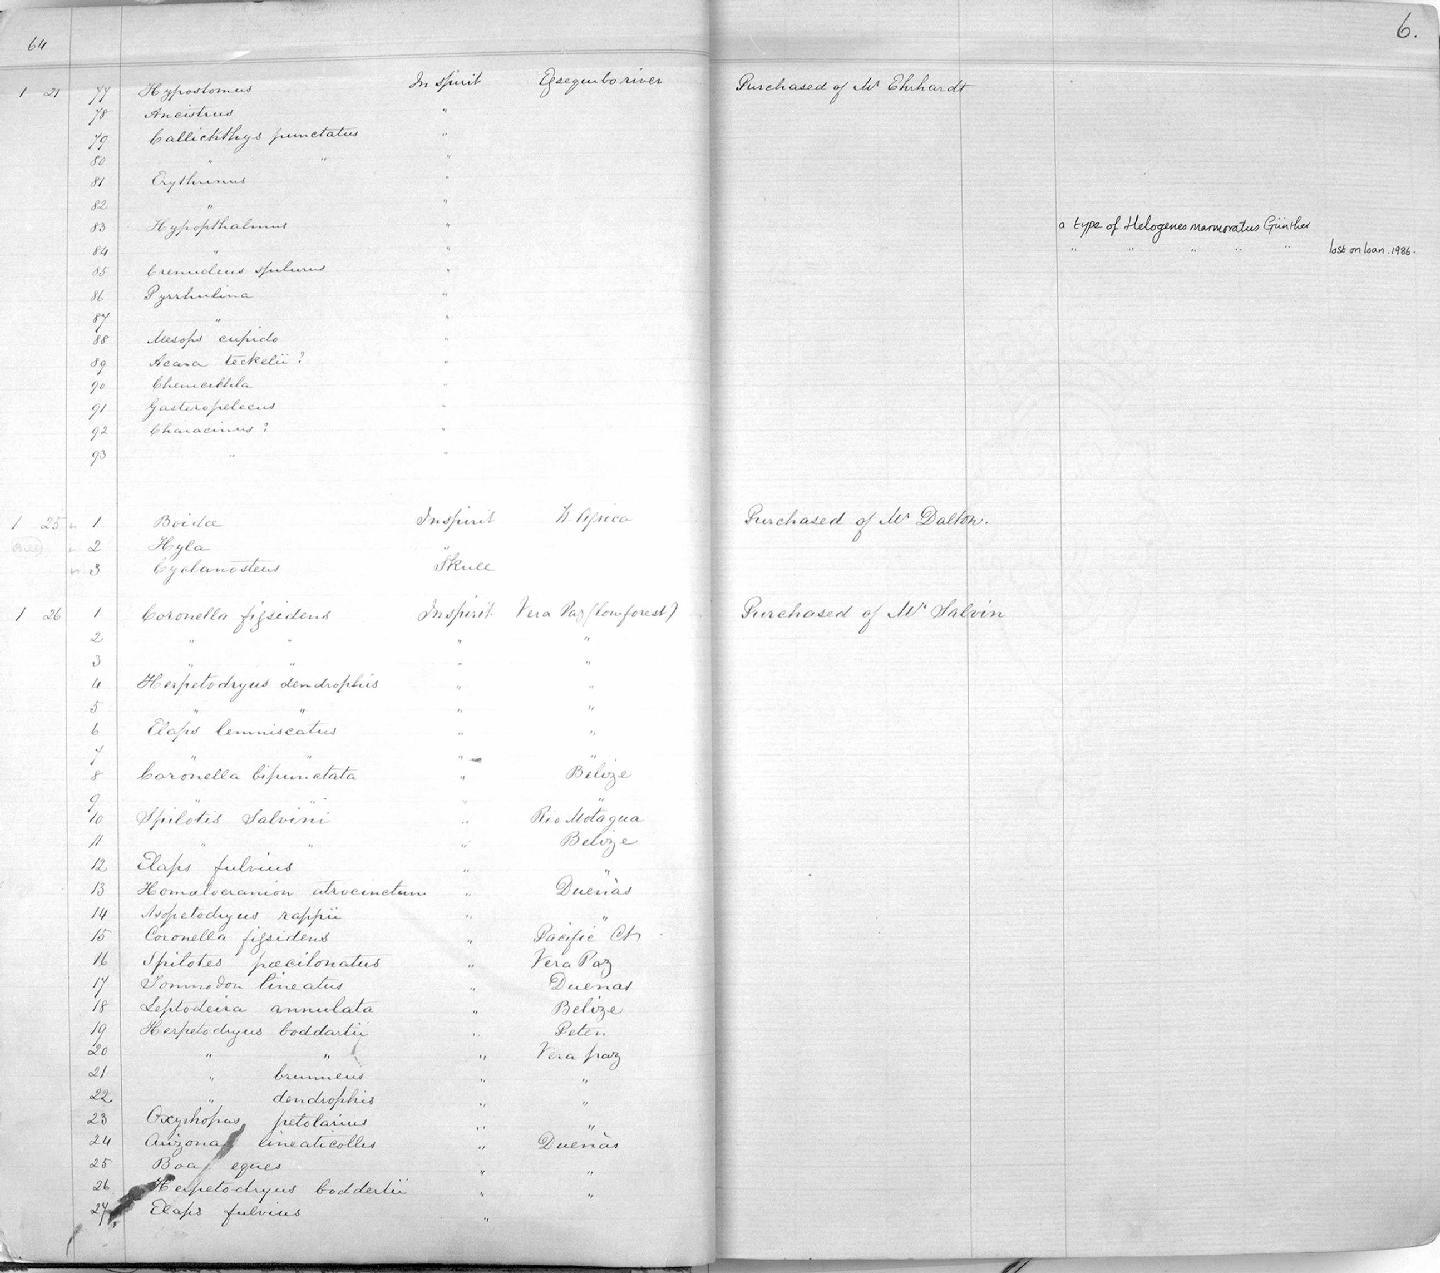 64
6.
1 21 77 Hypostomus In Spirit Essequibo river Purchased of Mr Ehrhardt
78 Ancistrus "
79 Callichthys punctatus "
80 " " "
81 Erythrinus "
82 " "
83 Hypopthalmus " a type of Helogenes marmoratus Günther
84 " " " " " " " lost on loan. 1986.
85 Crenucleus spilurus "
86 Pyrrhulina "
87 " "
88 Mesops cupido "
89 Acara teckelii? "
90 "
91 Gasteropelecus "
92 Characinus? "
93 " "
1 25 1 Boidæ In spirit W Africa Purchased of Mr Dalton.
2 Hyla "
3 Cyclanosteus Skull
1 26 1 Coronella fissidens In spirit Vera Paz (low forest) Purchased of Mr Salvin
2 " " " "
3 " " " "
4 Herpetodryas dendrophis " "
5 " " " "
6 Elaps lemniscatus " "
7 " " " "
8 Coronella bipunctata " Belize
9 " " " "
10 Spilotis Salvini " Rio Motagua
11 " " " Belize
12 Elaps fulvius " "
13 Homalocranion atrocinctum " Duenas
14 rappii " "
15 Coronella fissidens " Pacific Ct
16 Spilotes pœcilonatus " Vera Paz
17 Tomnodon lineatus " Duenas
18 Leptodeira annulata " Belize
19 Herpetodryas boddartii " Peten
20 " " " Vera paz
21 " brunneus " "
22 " dendrophis " "
23 Oxyrhopas petolarius " "
24 Arizona lineaticollis " Duenas
25 Boa eques " "
26 Herpetodryas boddertii " "
27 Elaps fulvius "